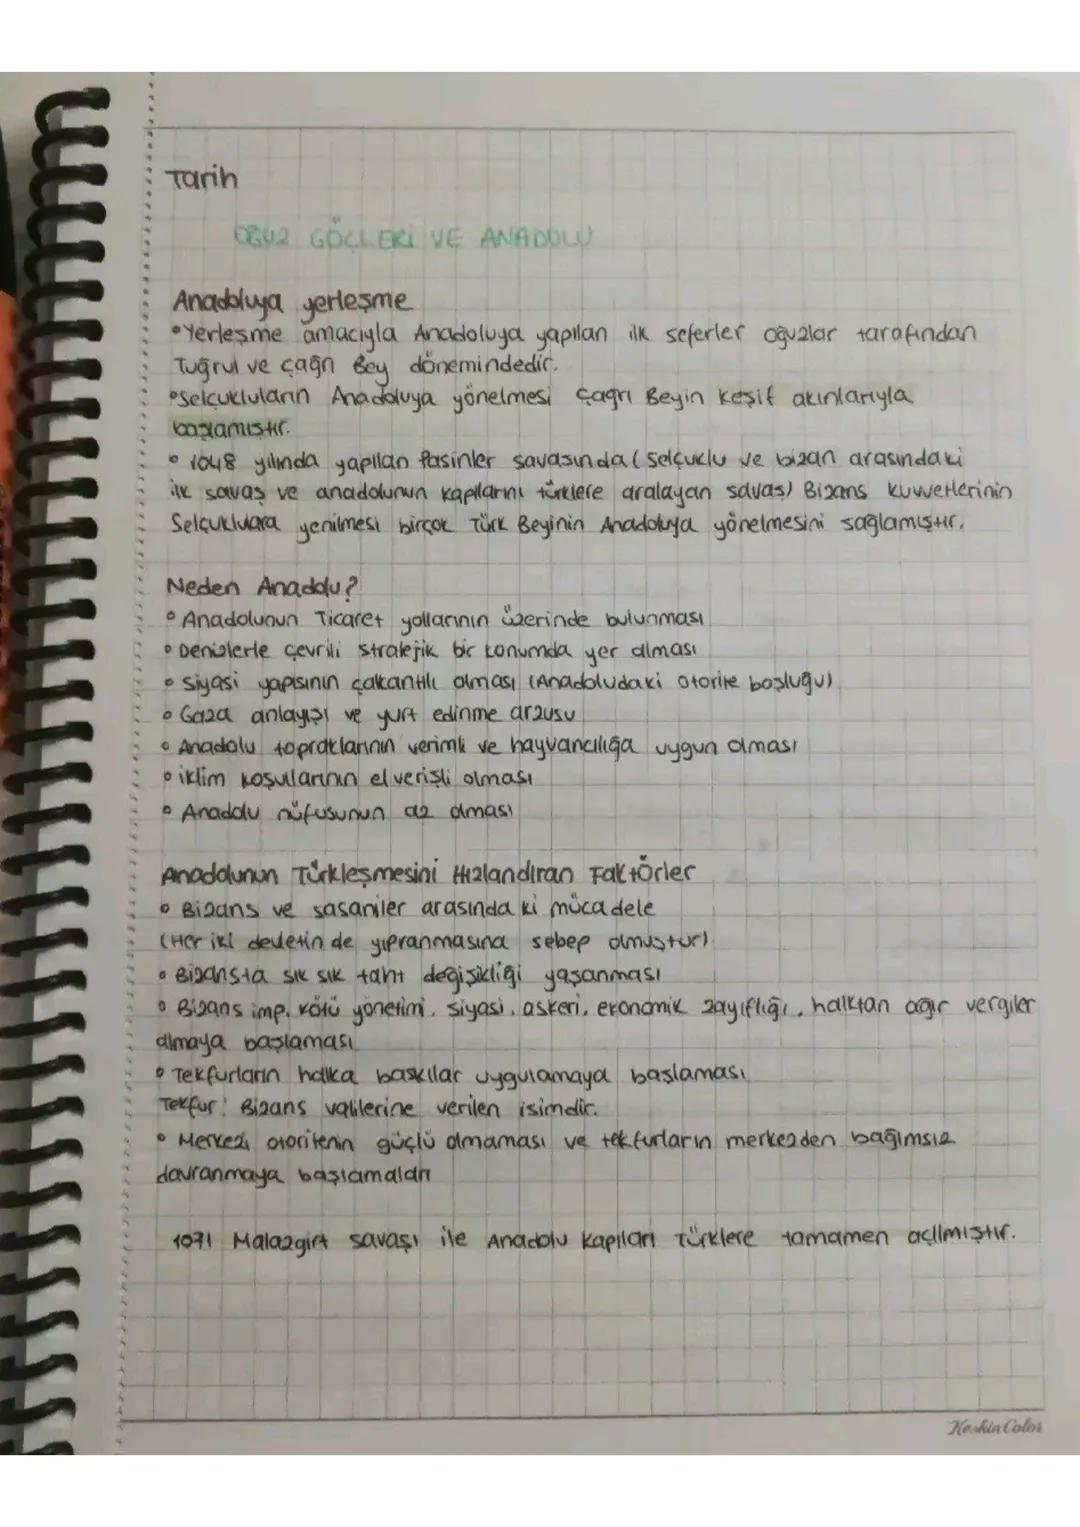 Tarih
OĞUZ GÖÇLERİ VE ANADOLU
Anadoluya yerleşme
•Yerleşme amacıyla Anadoluya yapılan ilk seferler oğuzlar tarafından
Tuğrul ve çağrı Bey dönemindedir.
•Selçukluların Anadoluya yönelmesi çağrı Beyin keşif akınlarıyla
başlamıştır.
• 1048 yılında yapılan Pasinler savasında (selçuklu ve bizan arasındaki
ilk savaş ve anadolunun kapılarını türklere aralayan savaş) Bizans kuvvetlerinin
Selçuklulara yenilmesi birçok Türk Beyinin Anadoluya yönelmesini sağlamıştır.
Neden Anadolu?
• Anadolunun Ticaret yollarının üzerinde bulunması
• Denizlerle çevrili stratejik bir konumda yer alması
• Siyasi yapısının çalkantılı olması (Anadoludaki otorite boşluğu)
• Gaza anlayışı ve yurt edinme arzusu
• Anadolu topraklarının verimli ve hayvancılığa uygun olması
• iklim koşullarının elverişli olması
• Anadolu nüfusunun az olması
Anadolunun Türkleşmesini Hızlandıran Faktörler
• Bizans ve sasaniler arasında ki mücadele
(Her iki devletin de yıpranmasına sebep olmuştur)
• Bizansta sık sık taht değişikliği yaşanması
• Bizans imp. kötü yönetimi, siyasi, askeri, ekonomik zayıflığı, halktan ağır vergiler
almaya başlaması
• Tekfurların halka baskılar uygulamaya başlaması
Tekfur: Bizans valilerine verilen isimdir.
• Merkezi otoritenin güçlü olmaması ve tekfurların merkezden bağımsız
davranmaya başlamaları
1071 Malazgirt savaşı ile Anadolu kapıları Türklere tamamen açılmıştır.
Keskin Color